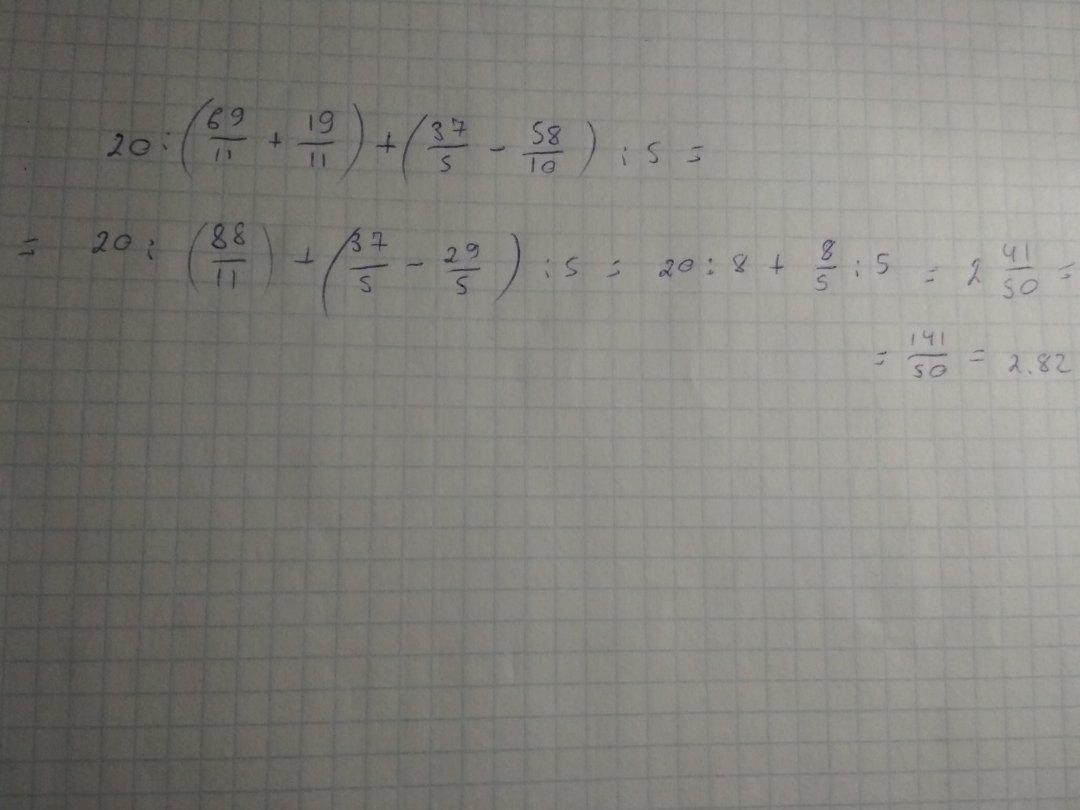 20 : (69/11 + 19/11) + (37/5 - 58/10) : 5 =
= 20 : (88/11) + (37/5 - 29/5) : 5 = 20 : 8 + 8/5 : 5 = 2 41/50 =
= 141/50 = 2.82